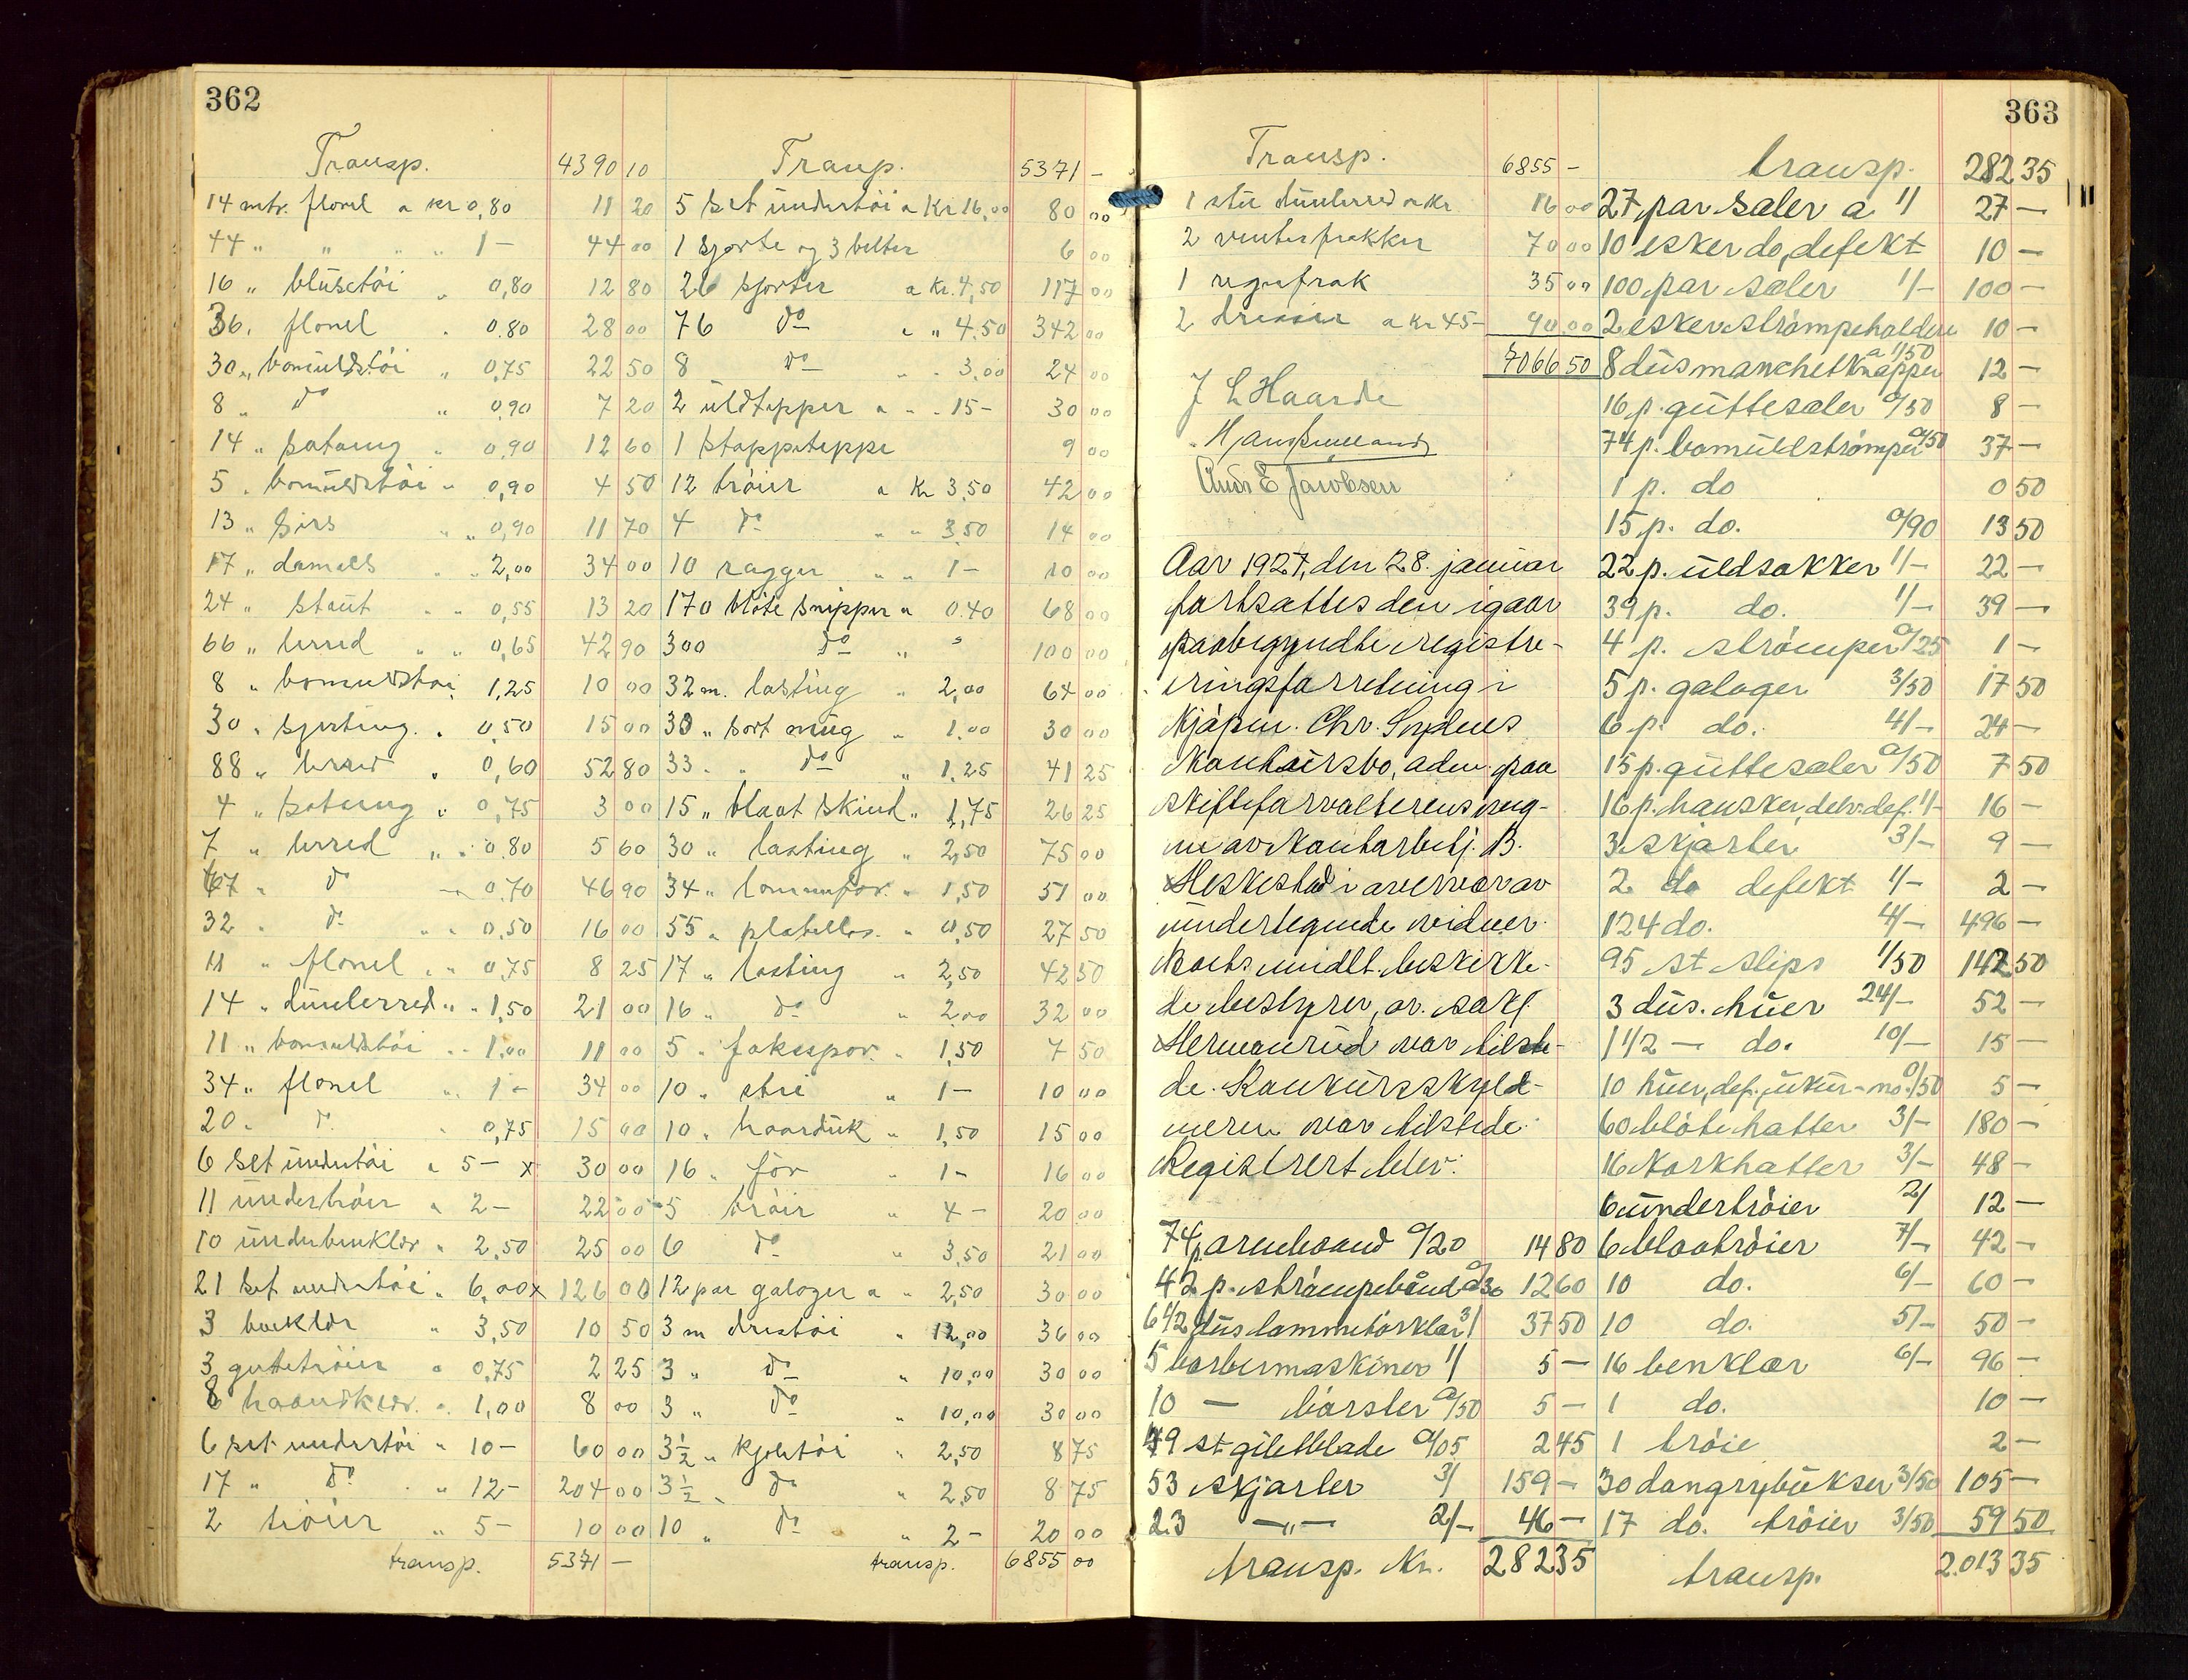 362
Transp. 4390 10
14 mtr. flonel a kr 0,80 11 20
44 " " " " 1 - 44 00
16 " blüsetöi " 0,80 12 80
36 " flonel " 0.80 28 00
30 " bomüldstöi " 0,75 22 50
8 " do " 0,90 7 20
14 " satang " 0,90 12 60
5 " bomüldstöi " 0,90 4 50
13 " sirs " " 0,90 11 70
17 " damask " " 2,00 34 00
24 " staut " " 0,55 13 20
66 " lerred " " 0,65 42 90
8 " bomuldstöi 1,25 10 00
30 " sjerting " 0,50 15 00
88 " lerred " 0,60 52 80
4 " satang " 0,75 3 00
7 " lerred " " 0.80 5 60
67 " do " 0,70 46 90
32 " do " " 0,50 16 00
11 " flonel " " 0,75 8 25
14 " dünlerred " " 1,50 21 00
11 " bomuldstöi " " 1.00 11 00
34 " flonel " " 1 - 34 00
20 " do " 0,75 15 00
6 set ündertöi a 5 - x 30 00
11 ündertröier a 2 - 22 00
10 ünderbenklær " 2,50 25 00
21 set undertöi " 6,00 x 126 00
3 benklær " 3,50 10 50
3 guttetröier a 0,75 2 25
8 haandklær. " 1,00 8 00
6 set undertöi " 10 - 60 00
17 " do " " 12 - 204 00
2 tröier " 5 - 10 00
transp. 5371 -
Transp. 5371 -
5 set ündertöi a Kr 16,00 80 00
1 sjorte og 3 belter 6 00
26 sjorter a Kr. 4,50 117 00
76 do " " 4.50 342 00
8 do " " 3,00 24 00
2 üldtepper a " 15 - 30 00
1 stoppeteppe 9 00
12 tröier a Kr 3,50 42 00
4 do " " 3,50 14 00
10 ragger " " 1 - 10 00
170 blöte snipper " 0.40 68 00
300 do " " 100 00
32 m. lasting " 2,00 64 00
30 " sort " 1.00 30 00
33 " " do " 1,25 41 25
15 " blaat skind " 1,75 26 25
30 " lasting " 2,50 75 00
34 " lommefor. " 1,50 51 00
55 " " 0,50 27 50
17 " lasting " 2,50 42 50
16 " do " 2,00 32 00
5 " " 1,50 7 50
10 " stri " 1 - 10 00
10 " haardük " 1,50 15 00
16 " för " 1 - 16 00
5 tröir " 4 - 20 00
6 do " 3,50 21 00
12 par galoger a " 2,50 30 00
3 m drestöi " 12,00 36 00
3 " do " 10,00 30 00
3 " do " 10,00 30 00
3 1/2 " kjoletöi " 2,50 8 75
3 1/2 " do " 2,50 8 75
10 " do " 2 - 20 00
transp. 6855 00
363
Transp. 6855 -
1 stk dünlerred a Kr 16 00
2 vinterfrakker 70 00
1 regnfrak 35 00
2 dresser a Kr 45 - 90,00
7066 50
J L Haarde
Ands E Jacobsen
Aar 1927, den 28. januar
fortsattes den igaar
paabegyndte registre-
ringsforretning i
Kjöpm. Chr. Sydnes
Konkursbo, adm. paa
skifteforvalterens veg-
ne av Kontorbetj. B.
Heskestad i overvær av
ündertegnede vidner.
Boets midlt. beskikke-
de bestyrer, or. sakf.
Hermanrud var tilste-
de. Konkursskyld-
neren var tilstede.
Registrert blev:
74 p armbaand 0/20 14 80
42 p. strömpebånd 0/30 12 60
6 1/2 düs lommetörklær 3/ 37 50
5 barbermaskiner 1/ 5 -
10 - börster 0/50 5 -
49 st giletblade 0/05 2 45
53 skjorter 3/ 159 -
23 -"- 2/- 46 -
transp. Kr. 282 35
transp. 282 35
27 par saler a 1/ 27 -
10 esker do, defekt 10 -
100 par saler 1/- 100 -
2 esker strömpeholdere 10 -
8 düs manchetknapper a 1/50 12 -
16 p. güttesaler 0/50 8 -
74 p. bomüldströmper 0/50 37 -
1 p. do 0 50
15 p. do. 0/90 13 50
22 p. üldsokker 1/- 22 -
39 p. do. 1/- 39 -
4 p. strömper 0/25 1 -
5 p. galoger 3/50 17 50
6 p. do. 4/- 24 -
15 p. güttesaler 0/50 7 50
16 p. hansker, delv. def. 1/- 16 -
3 skjorter 3/- 9 -
2 do defekt 1/- 2 -
124 do. 4/- 496 -
95 st slips 1/50 142 50
3 düs. hüer 24/- 52 -
1 1/2 - do. 10/- 15 -
10 hüer, def., ükür- 0/50 5 -
60 blöte hatter 3/- 180 -
16 Korkhatter 3/- 48 -
6 ündertröier 2/ 12 -
6 blaatröier 7/- 42 -
10 do. 6/- 60 -
10 do. 5/- 50 -
16 benklær 6/- 96 -
1 do. 10 -
1 tröie 2 -
30 dongrybükser 3/50 105 -
17 do. tröier 3/50 59 50
transp. 2.013 35